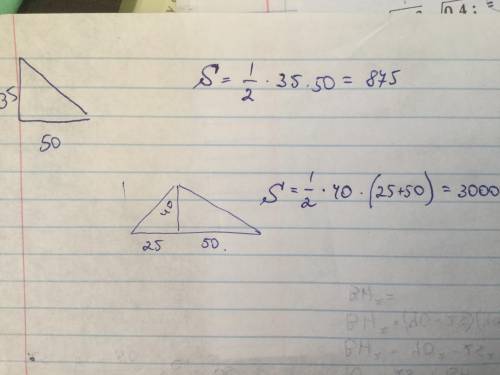 35
50
S = 1/2 · 35 · 50 = 875
40
25 50.
S = 1/2 · 40 · (25+50) = 3000